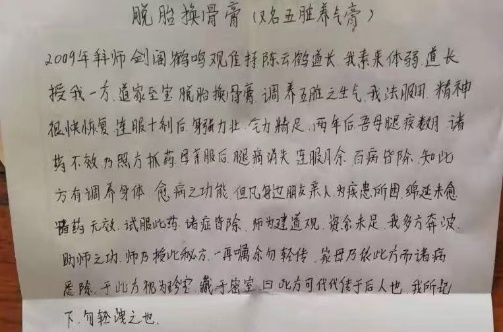 脱胎换骨膏（又名五脏养气膏）
2009年拜师剑阁鹤鸣观住持陈云鹤道长,我素来体弱,道长
授我一方,道家至宝脱胎换骨膏,调养五脏之生气,我法服用,精神
很快恢复,连服十剂后身强力壮,气力精足,两年后吾母腿疼数月,诸
药不效,乃照方抓药母亲服后腿病消失,连服月余,百病皆除,知此
方有调养身体,愈病之功能,但凡身边朋友亲人,为疾患所困,绵延未愈
诸药无效,试服此药,诸症皆除,师为建道观,资金未足,我多方奔波
助师之功,师乃授此秘方,一再嘱余勿轻传,家母乃依此方而诸病
居除,于此方视为珍宝,藏于密室,曰此方可代代传于后人也,我所记
下,勿轻洩之也.